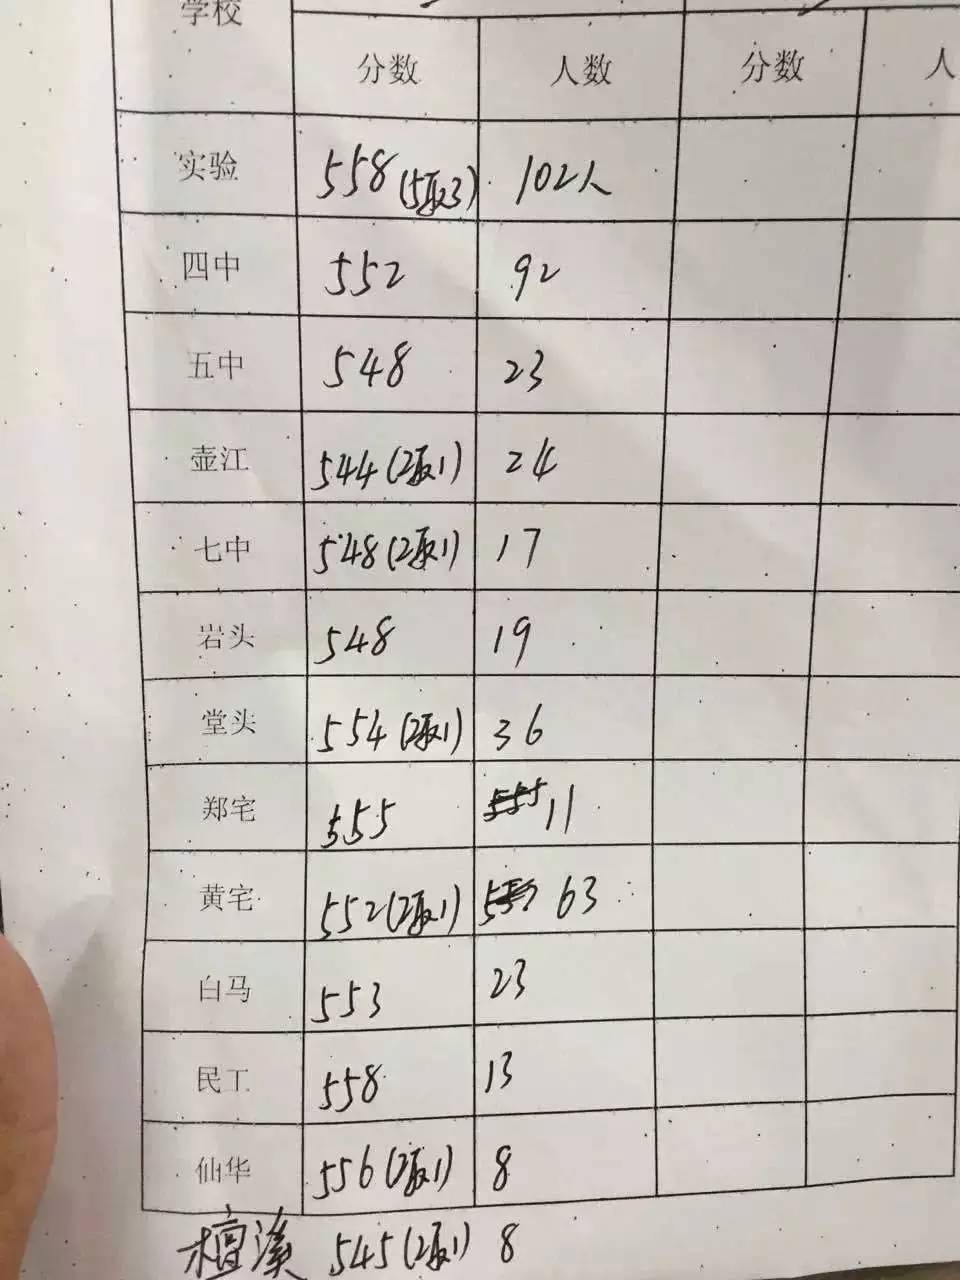 学校
分数 人数 分数 人
实验 558(5取3) 102人
四中 552 92
五中 548 23
壶江 544(2取1) 24
七中 548(2取1) 17
岩头 548 19
堂头 554(2取1) 36
郑宅 555 555 11
黄宅 552(2取1) 63
白马 553 23
民工 558 13
仙华 556(2取1) 8
檀溪 545(2取1) 8